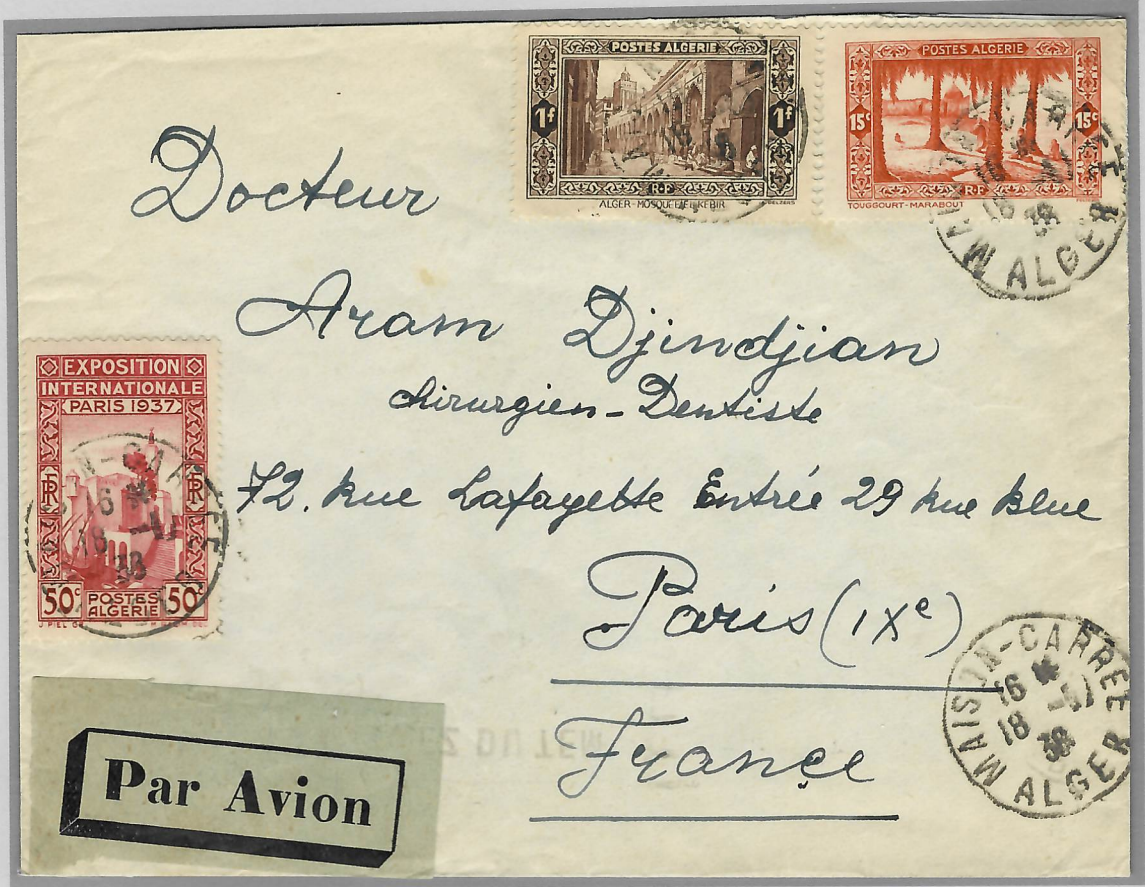 POSTES ALGERIE
1f 1f
RF
ALGER-MOSQUÉE EL KEBIR
POSTES ALGERIE
15c 15c
RF
TOUGGOURT-MARABOUT
MAISON-CARRÉE
16
18
38
ALGER
Docteur
Aram Djindjian
chirurgien-Dentiste
72. Rue Lafayette Entrée 29 rue Bleue
Paris (IXe)
France
EXPOSITION
INTERNATIONALE
PARIS 1937
RF RF
50c POSTES ALGERIE 50c
16
18
38
MAISON-CARRÉE
16
18
38
ALGER
Par Avion